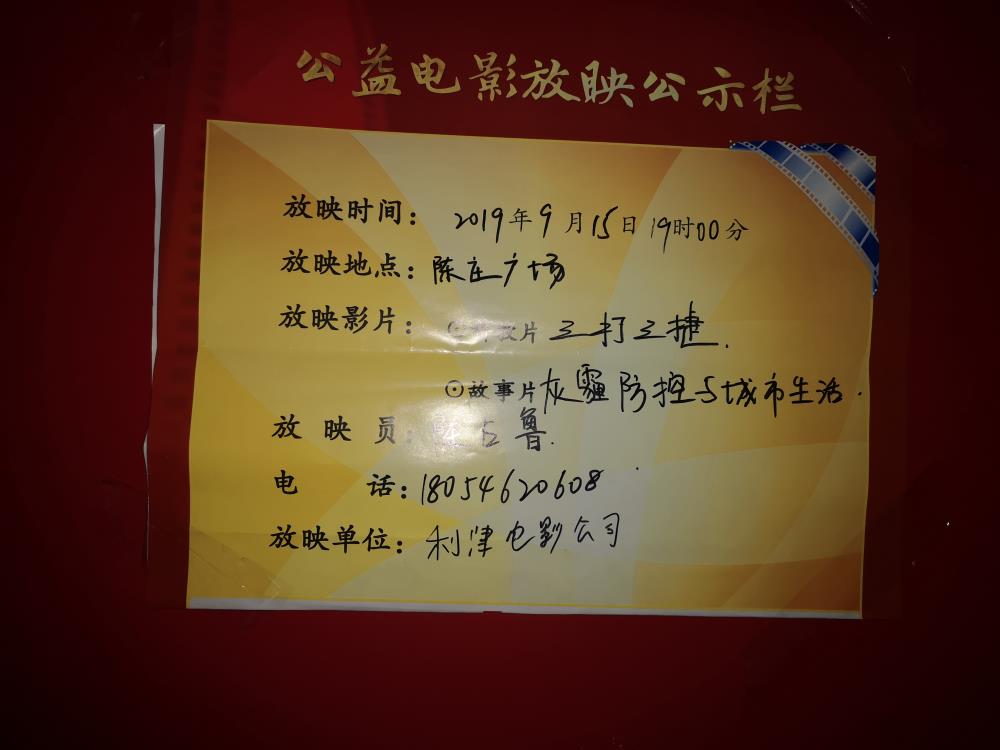 公益电影放映公示栏
放映时间：2019年9月15日19时00分
放映地点：陈庄广场
放映影片：⊙科教片 三打三捷.
⊙故事片 灰霾防控与城市生活.
放映员：占鲁.
电话：18054620608
放映单位：利津电影公司